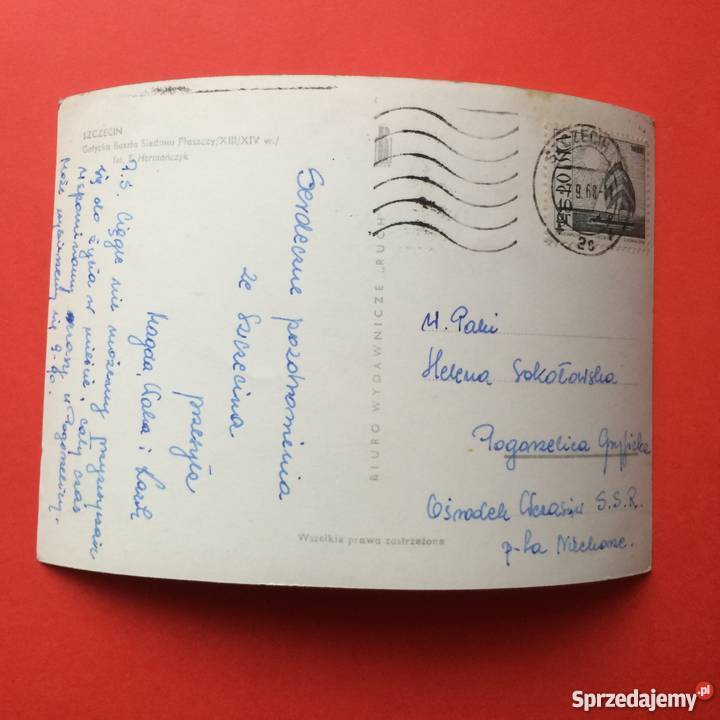 SZCZECIN
Gotycka Baszta Siedmiu Płaszczy/XIII/XIV w./
fot. Hermańczyk
Serdeczne pozdrowienia
ze Szczecina
przesyła
Magda, i
P.S. Ciągle nie możemy przyzwyczaić
się do życia w mieście i cały czas
wspominamy wczasy w Pogorzelicy.
Może wybierzemy się 9-go.
BIURO WYDAWNICZE „RUCH"
Wszelkie prawa zastrzeżone
SZCZECIN
9.68
2c
POLSKA
W. Pani
Helena Sokołowska
Pogorzelica Gryficka
Ośrodek Wczasów S.S.R.
p-ta Niechorze.
Sprzedajemy.pl